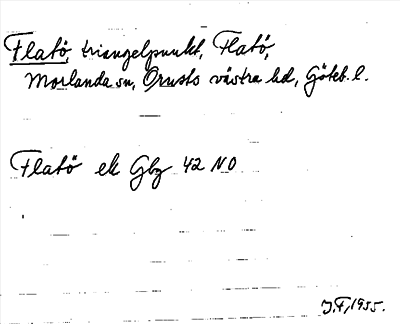 Flatö, triangelpunkt, Flatö,
Morlanda sn, Orusts västra hd, Göteb. l.
Flatö ek Gbg 42 NO
J.F., 1955.